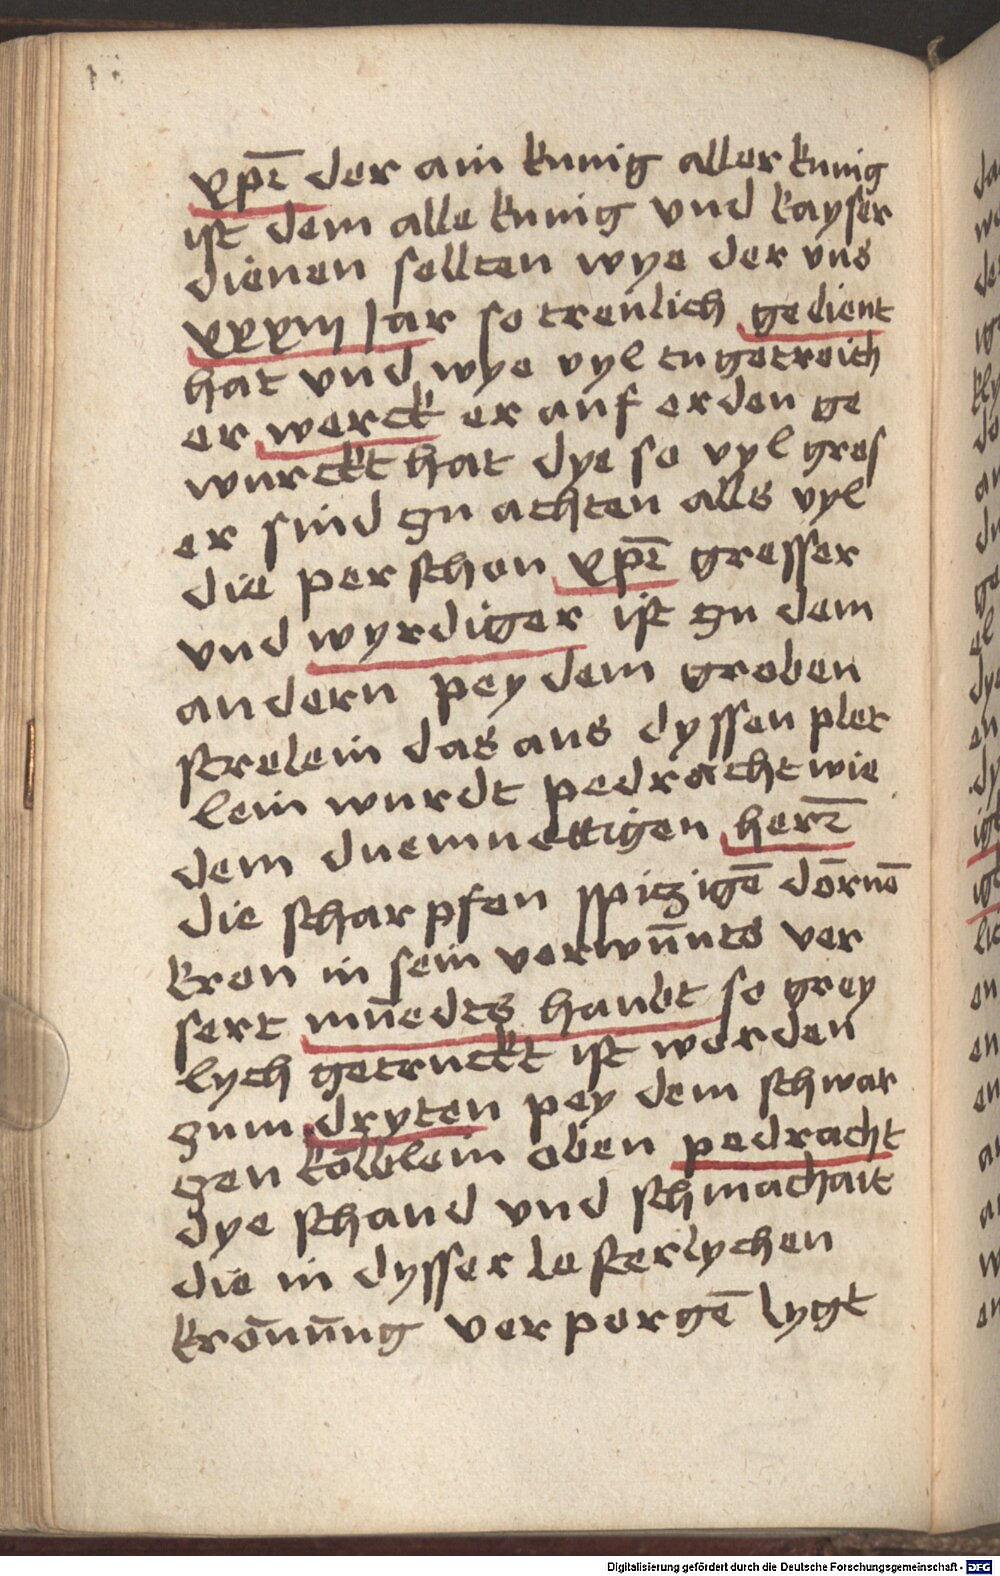 xp̄i der ain kunig aller kunig
ist dem alle kunig vnd kayser
dienen sollten wye der vns
xxxiij Jar so treulich gedient
hat vnd wye vyl tugetreich
er werck er auf erden ge
wurckt hat dye so vyl gros
er sind zu achten alls vyl
die perschon xp̄i gresser
vnd wyrdiger ist zu dem
andern pey dem groben
strelein das aus dyssen plet
lein wurdt pedracht wie
dem duemuettigen herr̄
die scharpfen spitzigē dōrnē
kron in sein verwūnts ver
sert mūedts haubt so grey
lych getruckt ist worden
zum dryten pey dem schwar
zen kōlblein oben pedracht
dye schand vnd schmachait
die in dysser lesterlychen
krōnūng verporgē lygt
Digitalisierung gefördert durch die Deutsche Forschungsgemeinschaft - DFG